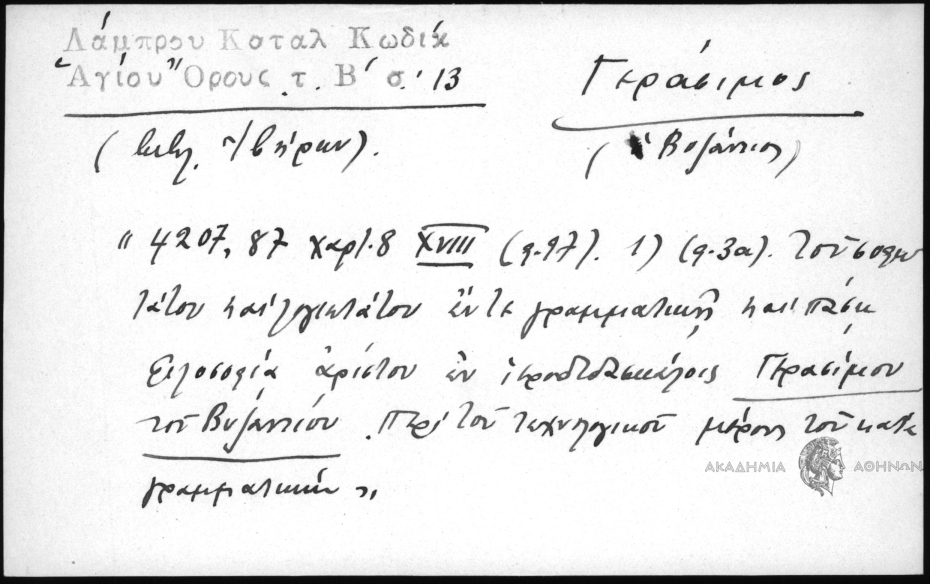 Λάμπρου Καταλ Κωδίκ
Ἁγίου Ὄρους τ. Β΄ σ. 13
Γεράσιμος
(βιβλ. Ἰβήρων).
(ὁ Βυζάντιος)
" 4207, 87 χαρτ. 8 XVIII (φ. 97). 1) (φ. 3α). Τοῦ σοφω
τάτου καὶ λογιωτάτου ἔν τε γραμματικῇ καὶ πάσῃ
φιλοσοφίᾳ ἀρίστου ἐν ἱεροδιδασκάλοις Γερασίμου
τοῦ Βυζαντίου Περὶ τοῦ τεχνολογικοῦ μέρους τοῦ κατὰ
γραμματικήν "
ΑΚΑΔΗΜΙΑ ΑΘΗΝΩΝ